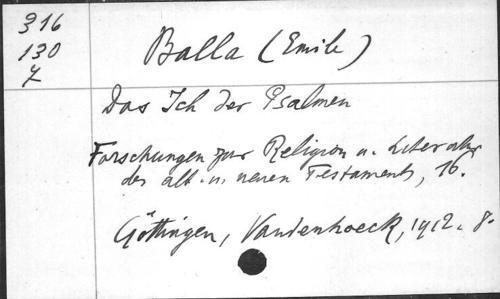 316
130
Z
Balla (Emile)
Das Ich der Psalmen
Forschungen zur Religion u. Literatur
des alt. u. neuen Testaments, 16.
Göttingen, Vandenhoeck, 1912. 8.